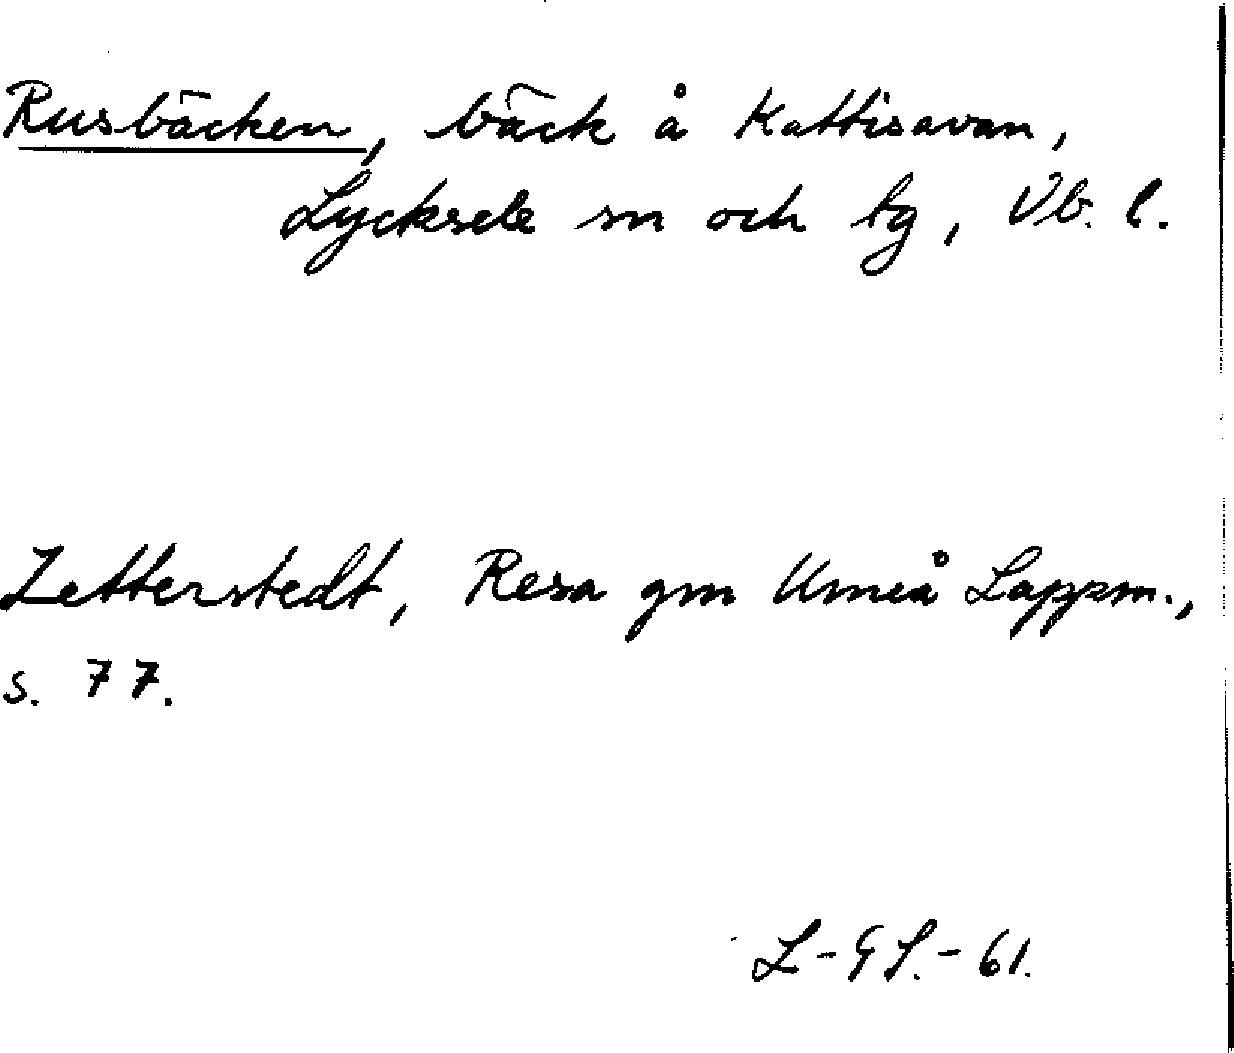 Rusbäcken, bäck å Kattisavan,
Lycksele sn och tg, Vb. l.
Zetterstedt, Resa gm Umeå Lappm.,
s. 77.
L-GS.-61.